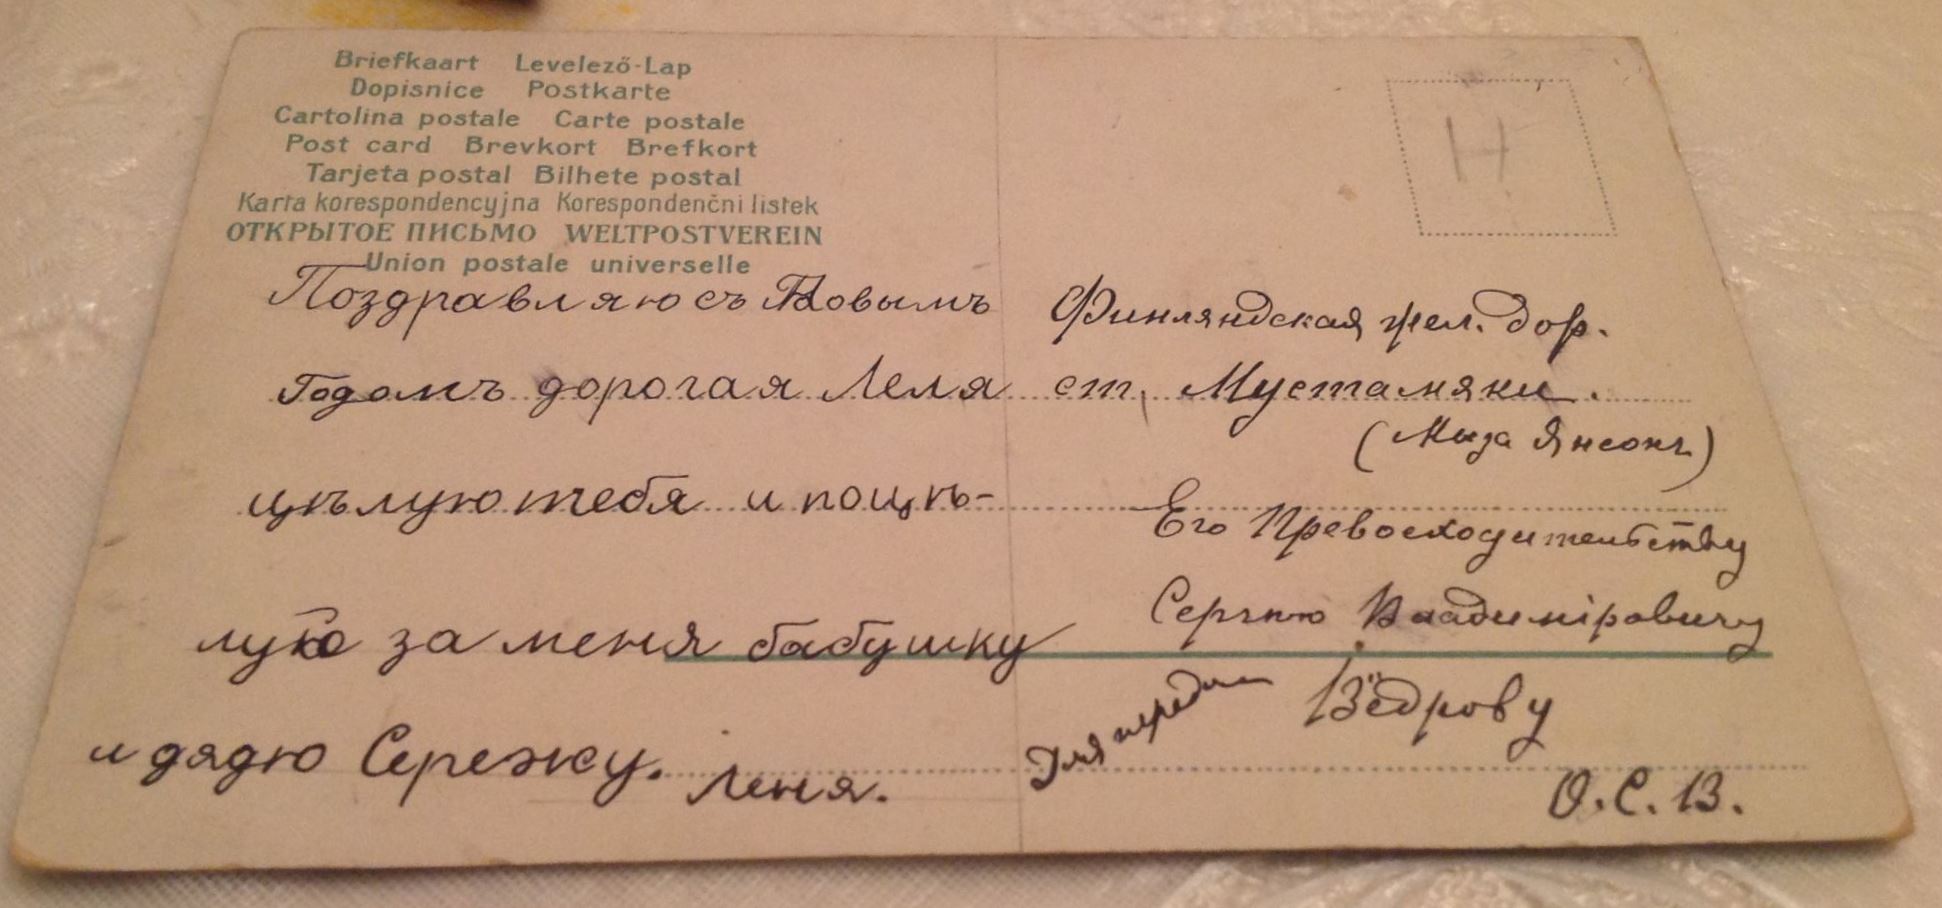 Briefkaart Levelező-Lap
Dopisnice Postkarte
Cartolina postale Carte postale
Post card Brevkort Brefkort
Tarjeta postal Bilhete postal
Karta korespondencyjna Korespondenčni listek
ОТКРЫТОЕ ПИСЬМО WELTPOSTVEREIN
Union postale universelle
Поздравляю съ Новымъ
Годомъ дорогая Леля
цѣлую тебя и поцѣ-
лую за меня бабушку
и дядю Сережу. Леня.
Н
Финляндская жел. дор.
ст. Мустамяки.
(Мыза Янсонъ)
Его Превосходительству
Сергѣю Владиміровичу
Вёдрову
Для передачи
О.С.В.